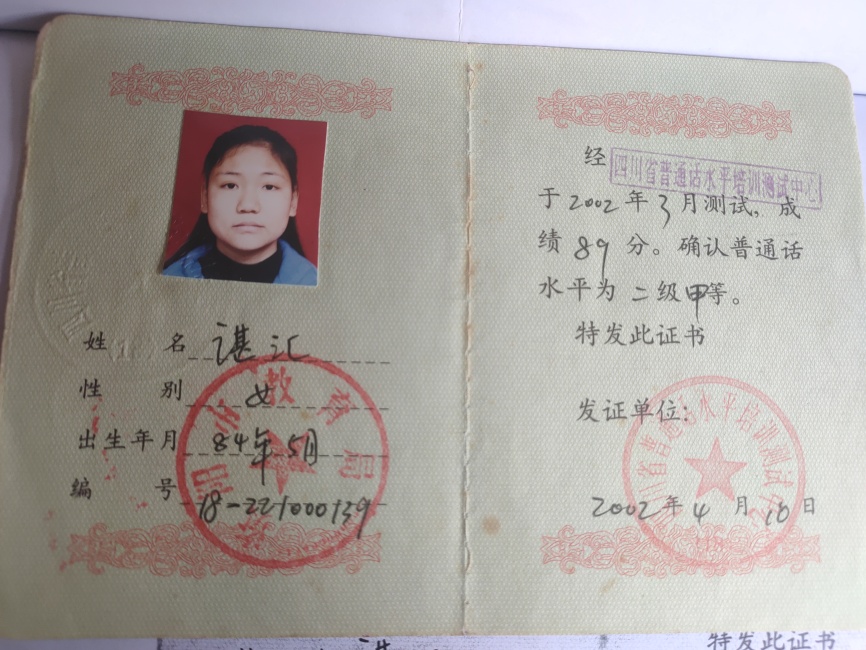 姓名 谌汇
性别 女
出生年月 84年5月
编号 18-221000139
教育局
经 四川省普通话水平培训测试中心
于2002年3月测试,成
绩89分。确认普通话
水平为二级甲等。
特发此证书
发证单位:
四川省普通话水平培训测试中心
2002年4月10日
特发此证书